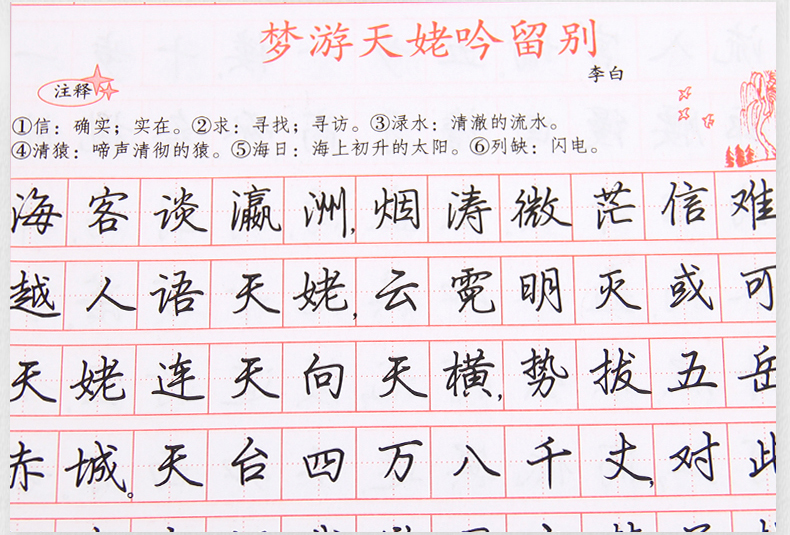 梦游天姥吟留别
李白
注释
①信：确实；实在。②求：寻找；寻访。③渌水：清澈的流水。
④清猿：啼声清彻的猿。⑤海日：海上初升的太阳。⑥列缺：闪电。
海客谈瀛洲,烟涛微茫信难
越人语天姥,云霓明灭或可
天姥连天向天横,势拔五岳
赤城。天台四万八千丈,对此